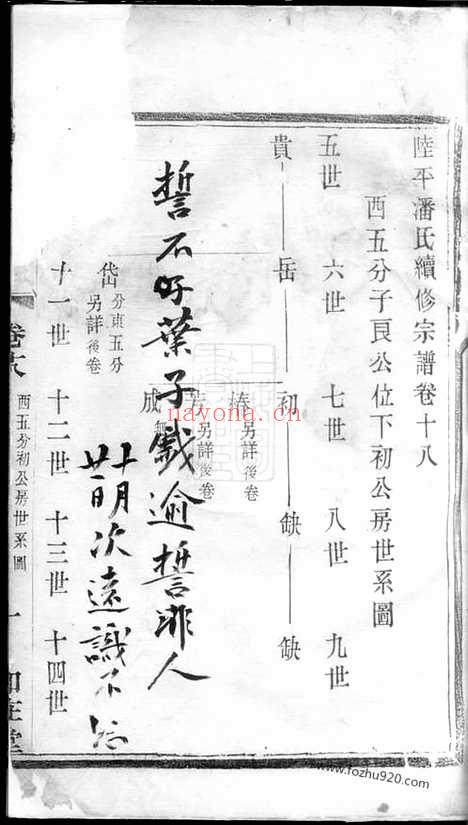 陸平潘氏續修宗譜卷十八
酉五分子良公位下初公房世系圖
五世 六世 七世 八世 九世
貴 岳 初 缺 缺
椿 另詳後卷
另詳後卷
成
誓不好葉子戲逾誓非人
岱 分東五分 另詳後卷
明次遠識不
十一世 十二世 十三世 十四世
酉五分初公房世系圖 一
nayona.cn
www.fozhu920.com